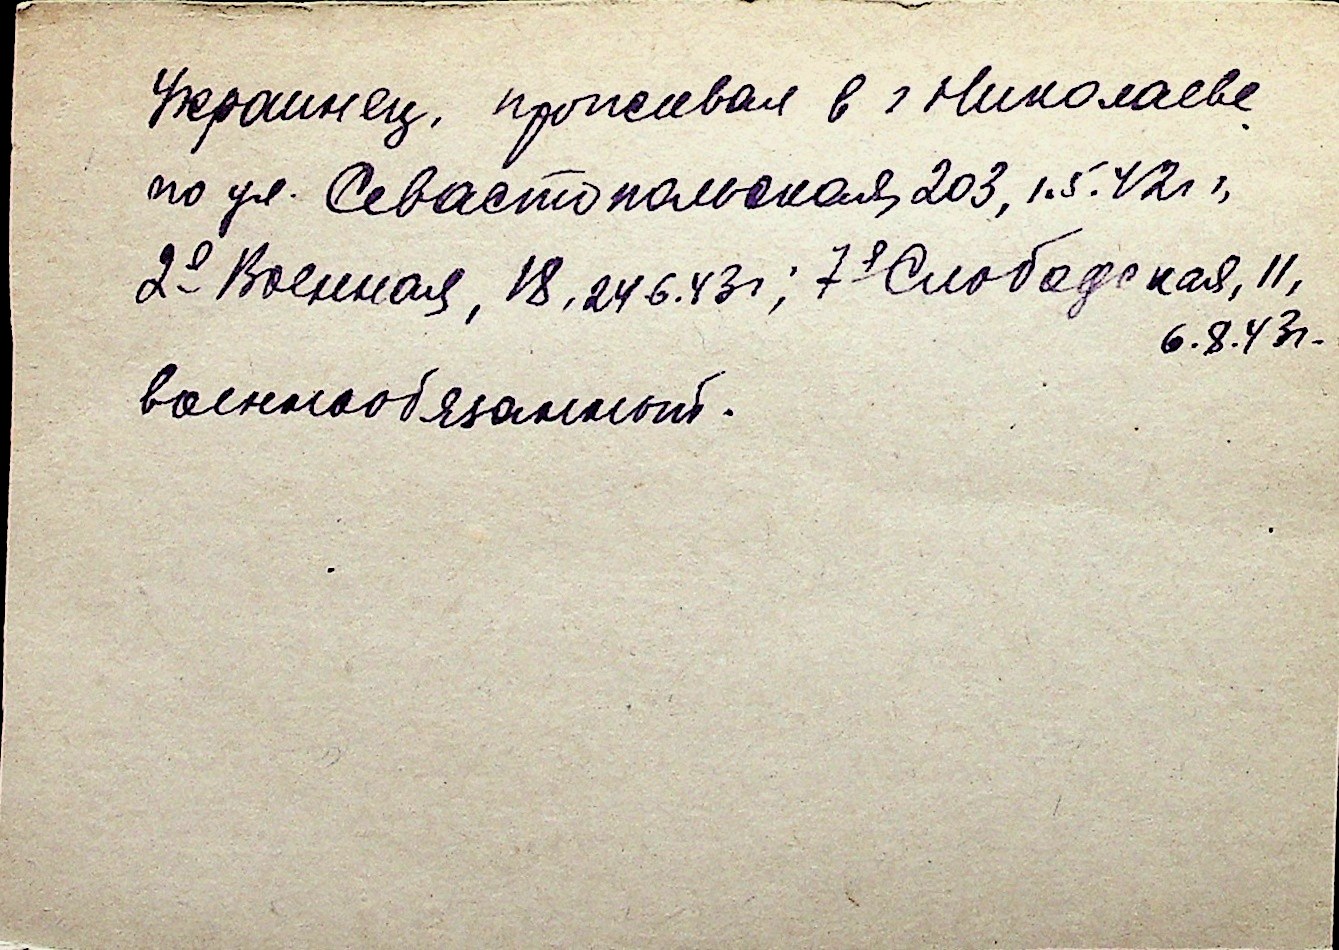 Украинец, проживал в г Николаеве
по ул. Севастопольская, 203, 1.5.42г г,
2я Военная, 18, 24 6.43г; 7я Слободская, 11,
6.8.43г.
военнообязанный.